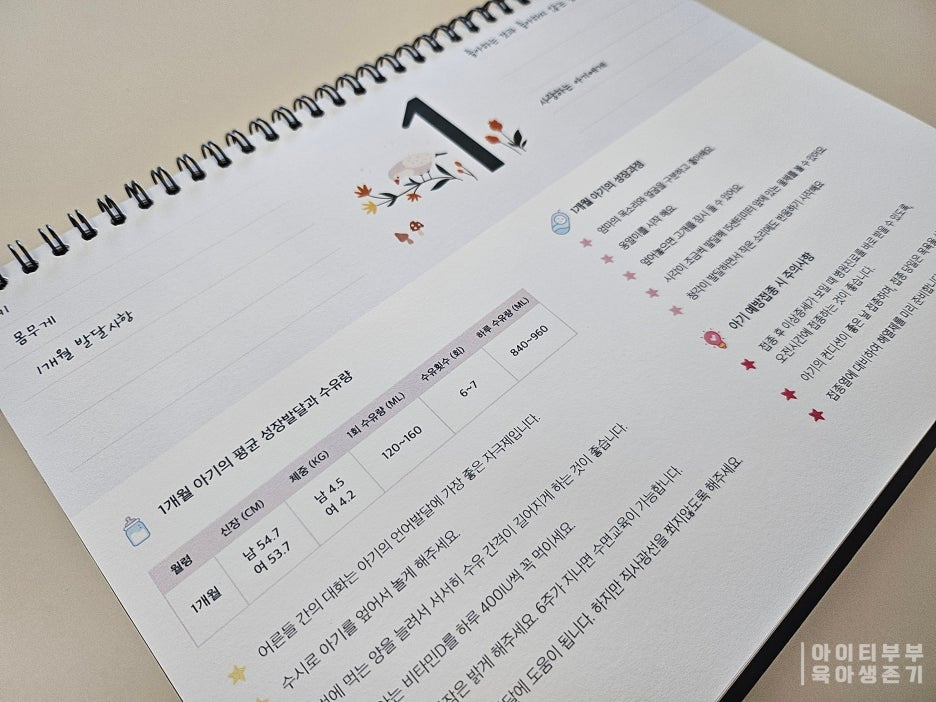 몸무게
1개월 발달사항
1
사랑하는 아기에게
1개월 아기의 평균 성장발달과 수유량
월령 신장 (CM) 체중 (KG) 1회 수유량 (ML) 수유횟수 (회) 하루 수유량 (ML)
1개월 남 54.7 남 4.5 120~160 6~7 840~960
여 53.7 여 4.2
어른들 간의 대화는 아기의 언어발달에 가장 좋은 자극제입니다.
수시로 아기를 엎어서 놀게 해주세요.
번에 먹는 양을 늘려서 서서히 수유 간격이 길어지게 하는 것이 좋습니다.
는 비타민D를 하루 400IU씩 꼭 먹이세요.
작은 밝게 해주세요. 6주가 지나면 수면교육이 가능합니다.
달에 도움이 됩니다. 하지만 직사광선을 쬐지않도록 해주세요.
1개월 아기의 성장과정
엄마의 목소리와 얼굴을 구분하고 좋아해요.
옹알이를 시작 해요.
엎어놓으면 고개를 잠시 들 수 있어요.
시각이 조금씩 발달해 15센티미터 앞에 있는 물체를 볼 수 있어요
청각이 발달하면서 작은 소리에도 반응하기 시작해요
아기 예방접종 시 주의사항
접종 후 이상증세가 보일 때 병원진료를 바로 받을 수 있도록
오전시간에 접종하는 것이 좋습니다.
아기의 컨디션이 좋은 날 접종하며, 접종 당일은 목욕을
접종열에 대비하여 해열제를 미리 준비합니다
아이티부부
육아생존기